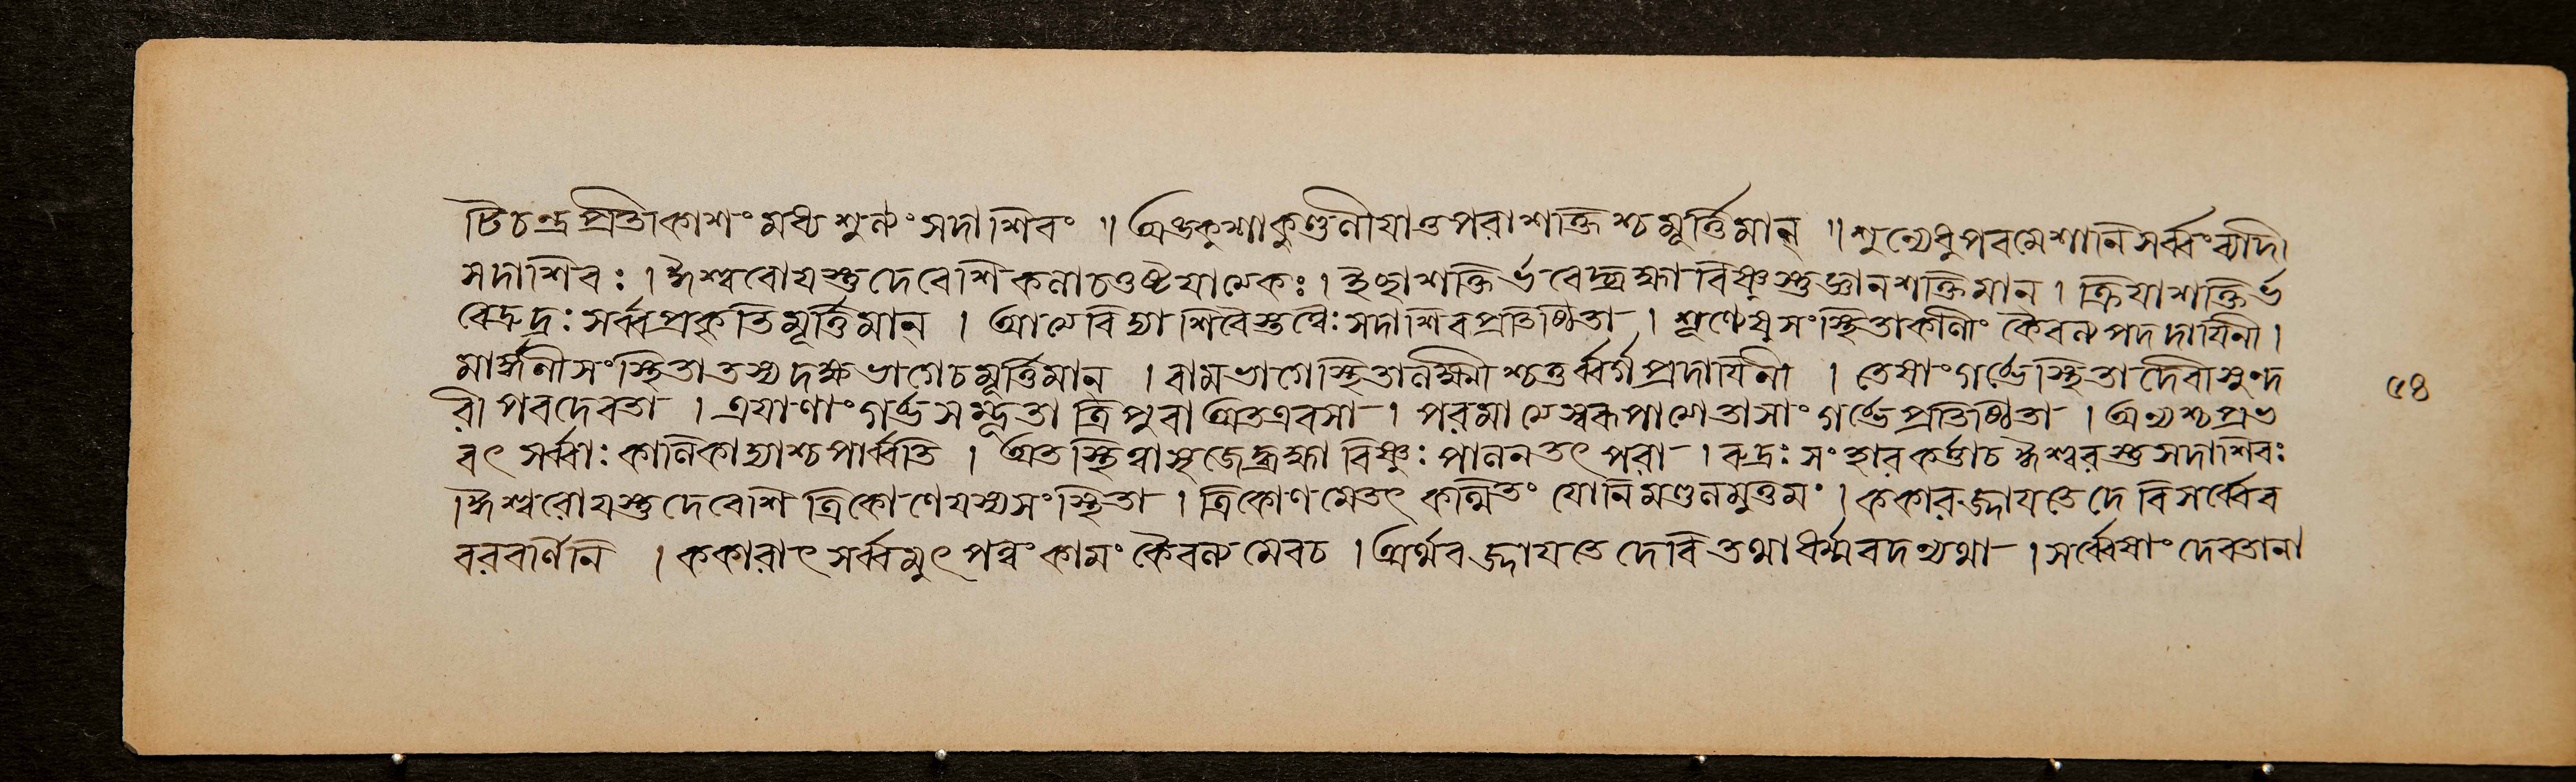 টিচন্দ্রপ্রতীকাশং মধ্য শূন্যং সদাশিবং ॥ অঙ্কুশাকুণ্ডলীযাতু পরাশক্তিশ্চমূর্ত্তিমান্ ॥ শূন্যেধু পরমেশানি সর্ব্বংব্যাদি
সদাশিবঃ । ঈশ্বরোযস্তু দেবেশি কলাচতুষ্টয়াত্মকঃ । ইচ্ছাশক্তির্ভবেদ্ব্রহ্মা বিষ্ণুস্তু জ্ঞানশক্তিমান । ক্রিয়াশক্তির্ভ
বেদ্রুদ্রঃ সর্ব্বপ্রকৃতিমূর্ত্তিমান্ । আত্মবিদ্যাশিবৈস্তত্বৈঃ সদাশিবপ্রতিষ্ঠিতা । শূণ্যেষুসংস্থিতাকালীং কৈবল্যপদদায়িনী ।
সংস্থিতা তস্য দক্ষভাগেচমূর্ত্তিমান্ । বামভাগেস্থিতালক্ষ্মীশ্চতুর্ব্বর্গপ্রদায়িনী । তেষাংগর্ভেস্থিতা দেবীসুন্দ
রী পরদেবতা । এযাণাংগর্ভসম্ভূতা ত্রিপুরা অতএবসা । পরমাত্মস্বরূপাত্মেতাসাংগর্ভেপ্রতিষ্ঠিতা । অন্যশ্চপ্রভ
বৎ সর্ব্বাঃ কালিকাদ্যাশ্চপার্ব্বতি । অতস্থিত্বাসৃজেদ্ব্রহ্মা বিষ্ণুঃ পালনতৎপরা । রুদ্রঃ সংহারকর্ত্তাচ ঈশ্বরস্তু সদাশিবঃ
। ঈশ্বরোযস্তু দেবেশি ত্রিকোণেযস্যসংস্থিতা । ত্রিকোণমেতৎ কথিতং যোনিমণ্ডলমুত্তমং । ককারজ্জায়তে দেবি সর্ব্বেব
বরবর্ণিনি । ককারাৎ সর্ব্বমুৎপন্নং কামং কৈবল্যমেবচ । অর্থবজ্জায়তে দেবি তথাধর্ম্মবদন্যথা । সর্ব্বেষাং দেবতানা
৫৪